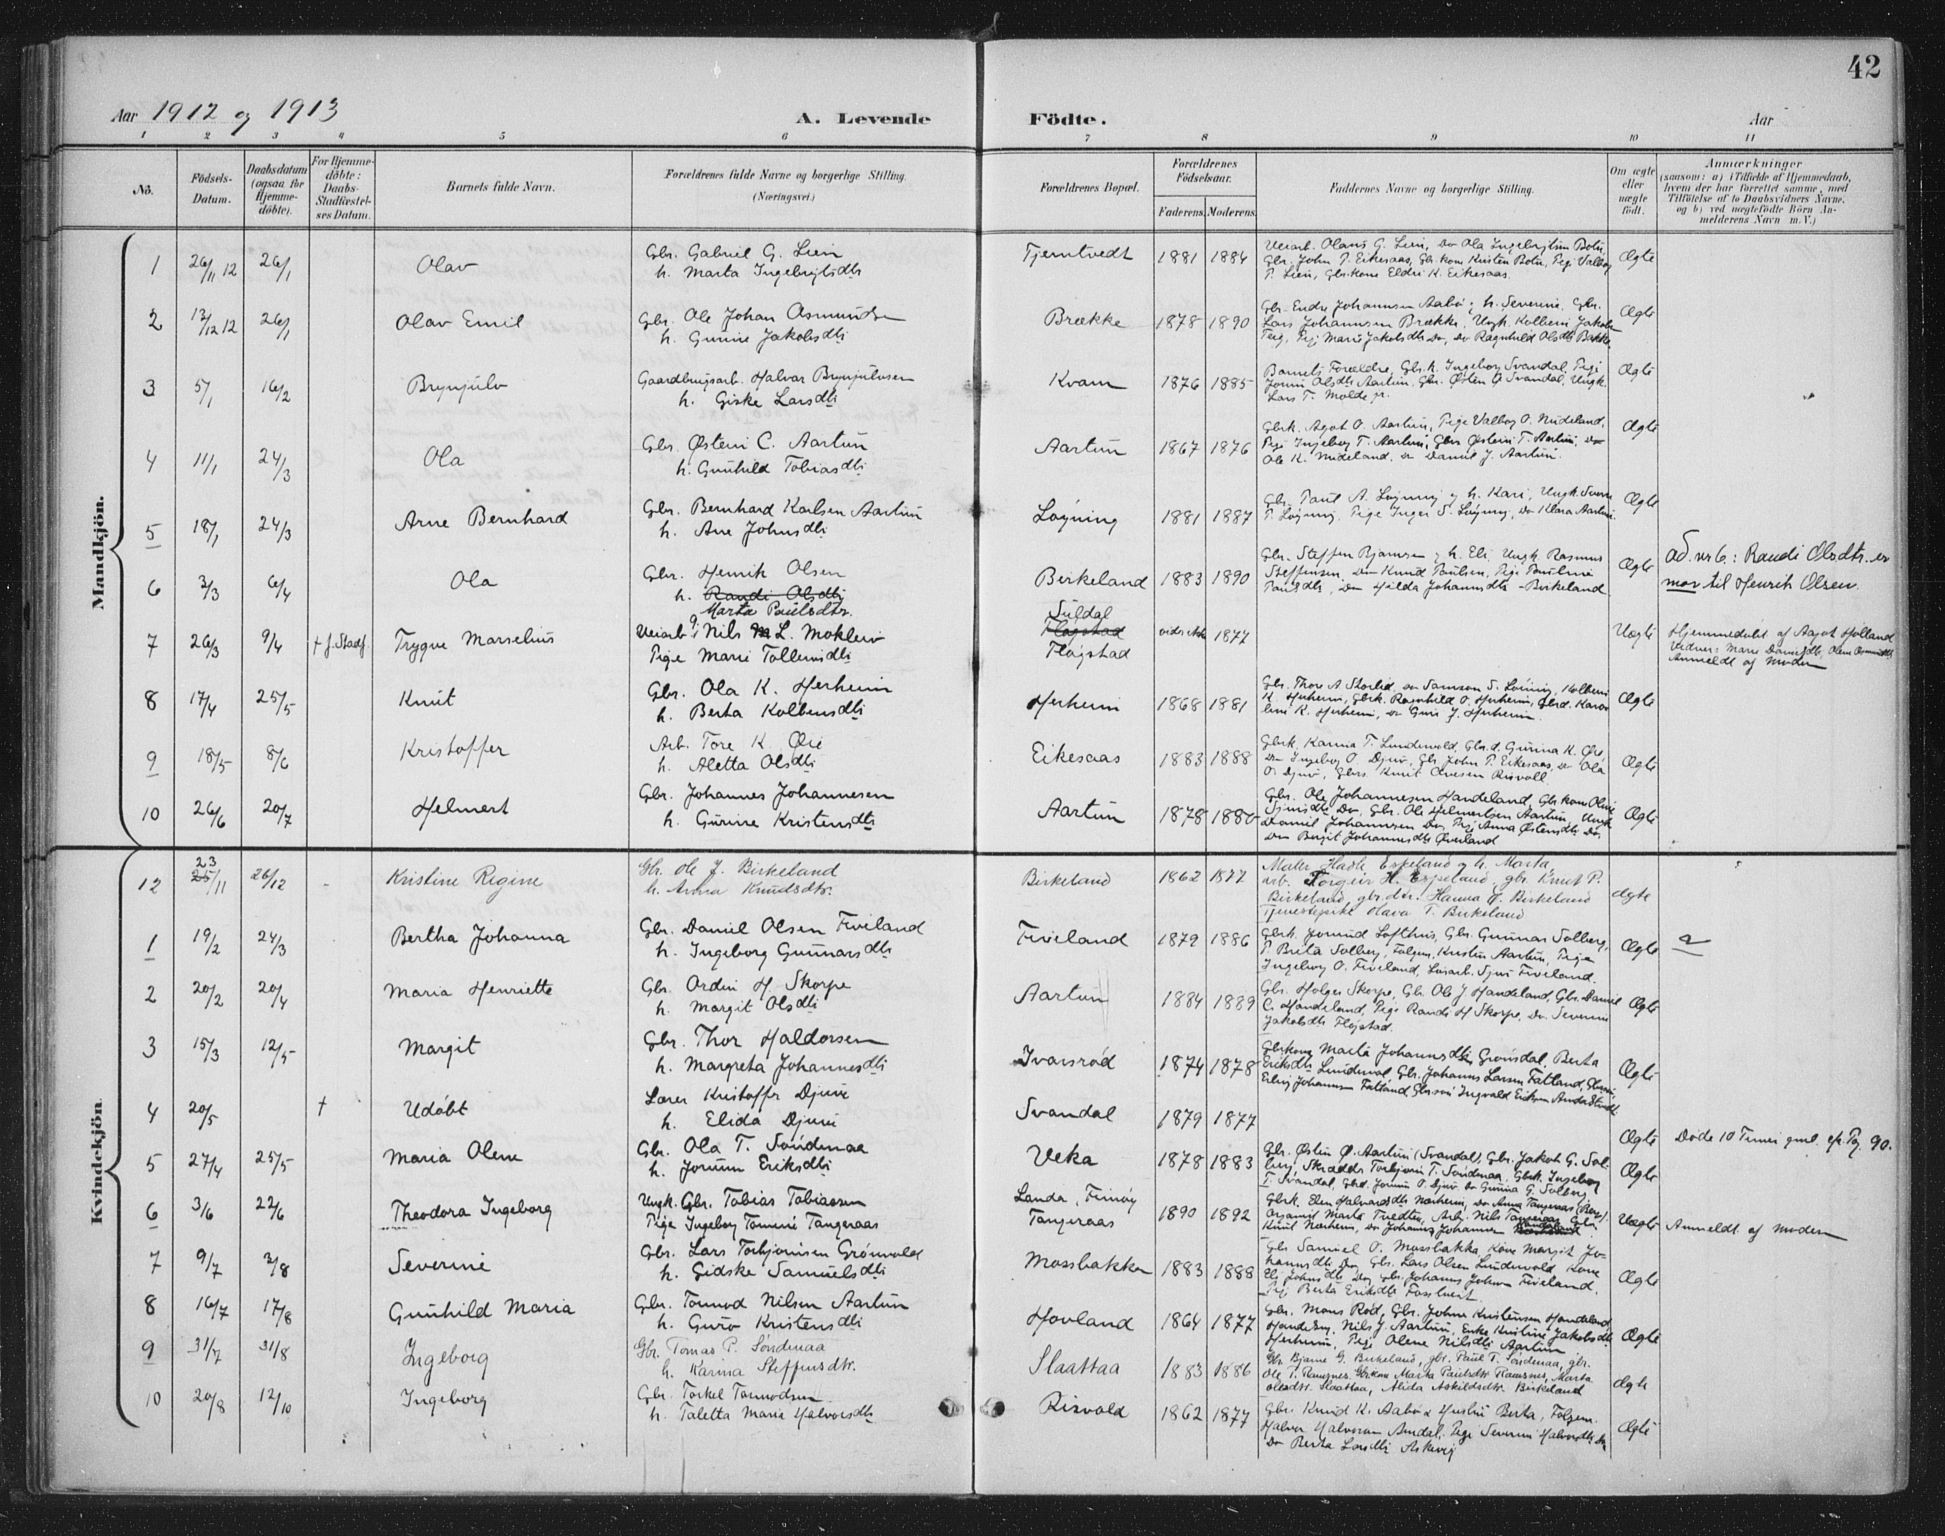 42
Aar 1912 og 1913 A. Levende Födte. Aar
1 2 3 4 5 6 7 8 9 10 11
Nô. Födsels-Datum. Daabsdatum (ogsaa for Hjemme-döbte). For Hjemme-döbte: Daabs-Stadfæstel-ses Datum. Barnets fulde Navn. Forældrenes fulde Navne og borgerlige Stilling. (Næringsvei.) Forældrenes Bopæl. Forældrenes Födselsaar. Faderens. Moderens. Faddernes Navne og borgerlige Stilling. Om ægte eller uægte födt. Anmærkninger (saasom: a) i Tilfælde af Hjemmedaab, hvem der har forrettet samme, med Tilföielse af to Daabsvidners Navne, og b) ved uægtefödte Börn An-melderens Navn m. V.)
Mandkjön.
1 26/11 12 26/1 Olav Gbr. Gabriel G. Lien
h. Marta Ingebrigtsdtr Tjerntvedt 1881 1884 Veiarb. Olaus G. Lien, Do Ola Ingebrigtsen Botn
Gbr. John P. Eikesaas, Gbr.kone Kristen Botn, Pige Valborg
P. Lien, Gbr.kone Eldri K. Eikesaas. Ægte
2 12/12 12 26/1 Olav Emil Gbr. Ole Johan Osmundsen
h. Gurine Jakobsdtr Brække 1878 1890 Gbr. Endre Johannsen Aabø og h. Severine, Gbr.
Lars Johannsen Brække, Ungk. Kolbein Jakobsen
Teig, Pige Marie Jakobsdtr Do, Do Ragnhild Olsdtr Bakke Ægte
3 5/1 16/2 Brynjulv Gaardbrugsarb. Halvar Brynjulvsen
h. Giske Larsdtr Kvam 1876 1885 Barnets Forældre, Gbr.k. Ingeborg Svandal, Pige
Jorun Olsdtr Aartun, Gbr. Østen G Svandal, Ungk.
Lars T. Molde jr. Ægte
4 11/1 24/3 Ola Gbr. Østein C. Aartun
h. Gunhild Tobiasdtr Aartun 1867 1876 Gbrk. Agot O. Aartun, Pige Valborg O. Nudeland,
Pige Ingeborg T. Aartun, Gbr Østein T. Aartun, Do
Ole K. Nudeland, Do Daniel J. Aartun. Ægte
5 18/1 24/3 Arne Bernhard Gbr. Bernhard Karlsen Aartun
h. Ane Johnsdtr Løyning 1881 1887 Gbr. Paul A. Løyning og h. Kari, Ungk. Sven
P. Løyning, Pige Inger S. Løyning, Do Klara Aartun. Ægte
6 3/3 6/4 Ola Gbr. Henrik Olsen
h. Randi Olsdtr
Marta Paulsdtr. Birkeland 1883 1890 Gbr. Steffen Bjarnsen og h. Eli, Ungk Rasmus
Steffensen, Do Knud Paulsen, Pige Pauline
Paulsdtr, Do Hilda Johannsdtr - Birkeland Ægte ad. nr 6: Randi Olsdtr. er
mor til Henrik Olsen.
7 26/3 9/4 + f. Stadf. Trygve Marselius Veiarb Nils M L. Moklev
Pige Marie Tollevsdtr Suldal
Flogstad
Fløgstad 1877 Uægte Hjemmedøbt af Aagot Hølland
Vidner: Marie Danielsdtr, Olene Osmundsdtr
Anmeldt af Moderen
8 17/4 25/5 Knut Gbr. Ola K. Herheim
h. Berta Kolbensdtr Herheim 1868 1881 Gbr. Thore A Storlid, Do Samson S. Løining, Kolbein
K. Herheim, Gbrk. Ragnhild O. Herheim, Gbrd. Karo-
line K. Herheim, Do Guri J. Herheim. Ægte
9 18/5 8/6 Kristoffer Arb. Tore K. Øie
h. Aletta Olsdtr Eikesaas 1883 1888 Gbrk. Karina T. Lundevold, Gbr.d. Gurina K. Øie,
Do Ingeborg O. Djuv, Gbr John P. Eikesaas, Do Ola
O. Djuv, Gbrs. Knut Ovesen Risvoll Ægte
10 26/6 20/7 Helmert Gbr. Johannes Johannesen
h. Gurine Kristensdtr Aartun 1878 1880 Gbr. Ole Johannesen Handeland, Gbr kone Oline
Do, Gbr. Ole Helmertsen Aartun, Ungk
Daniel Johannesen Do, Pige Anna Østensdtr Do,
Do Bergit Johannesdtr Øverland Ægte
Kvindekjön.
12 23 25/11 26/12 - Kristine Regine Gbr. Ole J. Birkeland
h. Anna Knudsdtr. Birkeland 1862 1877 Maler Hadle Eskeland og h. Marta,
arb. Torgeir H. Espeland, gbr. Knut P.
Birkeland, gbr.dtr. Hanna J. Birkeland
Tjenestepike Hava T. Birkeland ægte
1 19/2 24/3 Bertha Johanna Gbr. Daniel Olsen Fiveland
h. Ingeborg Gunnarsdtr Fiveland 1879 1886 Gbrk. Jorund Lofthus, Gbr. Gunnar Solberg,
P. Berta Solberg, Folgem. Kristen Aartun, Pige
Ingeborg O. Fiveland, Løsarb. Sjur Fiveland. Ægte
2 20/2 20/4 Maria Henriette Gbr. Ordin H Skorpe
h. Margit Olsdtr Aartun 1884 1889 Gbr. Holger Skorpe, Gbr. Ole J Handeland, Gbr. Daniel
C. Handeland, Pige Randi H Skorpe, Do. Severine
Jakobsdtr Fløgstad. Ægte
3 15/3 12/5 Margit Gbr. Thor Haldorsen
h. Margreta Johannesdtr Ivarsrød 1874 1878 Gbrkone Marta Johannsdtr Grønsdal, Berta
Eriksdtr Lundevold, Gbr. Johannes Larsen Fatland,
Johannsen Fatland, Gbrsøn Ingvald Eriksen Ægte
4 20/5 + Udøbt Lærer Kristoffer Djuve
h. Elida Djuve Svandal 1879 1877 Ægte Døde 10 Timer gml. cfr. Pg. 90.
5 27/4 25/5 Maria Olene Gbr. Ola T. Søndenaa
h. Jorunn Eriksdtr Veka 1878 1883 Gbr. Østen Ø. Aartun (Svandal), Gbr. Jakob G. Sol-
berg, Skrædder Torbjørn T. Søndenaa, Gbrk. Ingeborg
T. Svandal, Gbrd. Jorunn O. Djuv, Do Gunna G. Solberg Ægte
6 3/6 22/6 Theodora Ingeborg Ungk. Gbr. Tobias Tobiassen
Pige Ingeborg Tomine Tangeraas Landa, Finnøy
Tangeraas 1890 1892 Gbrk. Elen Halvardsdtr Næsheim, Do Anna Tangeraas
Marta Tvedten, Arb. Nils Tangeraas, Gbr.
Knut Næsheim, Do Johannes Johannes Uægte Anmeldt af Moderen
7 9/7 3/8 Severine Gbr. Lars Torbjørnsen Grønvold
h. Gidske Samuelsdtr Mossbakken 1883 1888 Gbr Samuel O. Mossbakka, Kone Margit Jo-
hannsdtr Do, Gbr. Lars Olsen Lundevold, Kone
Eli Johnsdtr Do, Gbr. Johannes Johnsen Fiveland,
Pige Berta Eriksdtr Fosstveit. Ægte
8 16/7 17/8 Gunhild Maria Gbr. Tormod Nilsen Aartun
h. Guro Kristensdtr Hovland 1864 1877 Gbr. Mons Rød, Gbr. Johne Kristensen Handeland,
Nils J Aartun, Enke Kristine Jakobsdtr
Herheim, Pige Olene Nilsdtr Aartun Ægte
9 31/7 31/8 Ingeborg Gbr. Tomas P. Søndenaa
h. Karina Steffensdtr. Slaattaa 1883 1886 Gbr. Bjarne G. Birkeland, gbr. Paul T. Søndenaa, gbr.
Ole T. Ramsnes, Gbrkone Marta Paulsdtr Ramsnes, Marta
Olesdtr. Slaattaa, Alida Askildsdtr. Birkeland ægte
10 20/8 12/10 Ingeborg Gbr. Torkel Tormodsen
h. Taletta Maria Halvorsdtr Risvold 1862 1877 Gbr. Knud K. Aabø & Hustru Berta, Folgem.
Halvor Halvorsen Amdal, Pige Severine Halvorsdtr Do
Do Berta Larsdtr Askevig Ægte